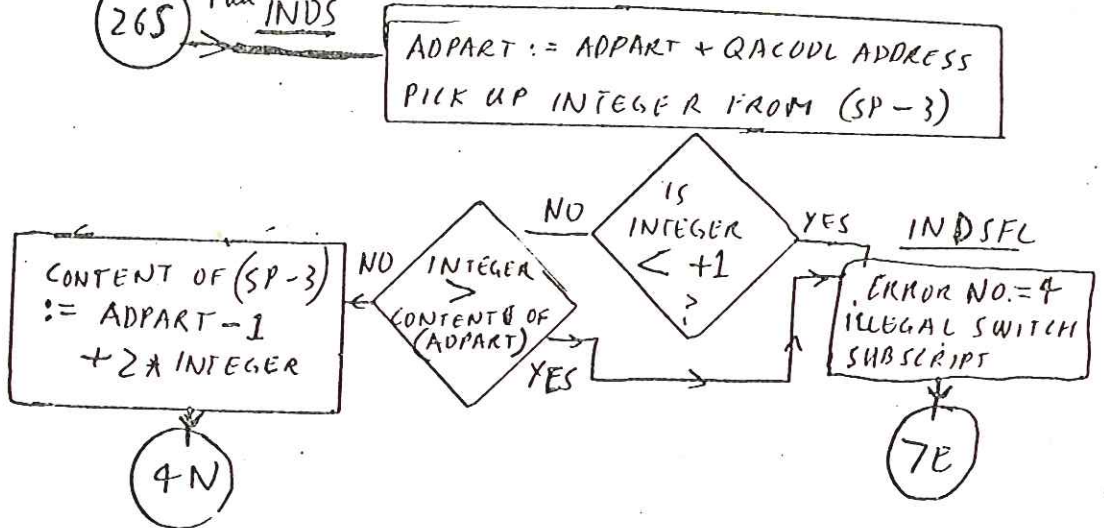 26S
INDS
ADPART := ADPART + QACODL ADDRESS
PICK UP INTEGER FROM (SP-3)
IS
INTEGER
< +1
?
NO
YES
INDSFL
ERROR NO. = 4
ILLEGAL SWITCH
SUBSCRIPT
7E
INTEGER
>
CONTENT OF
(ADPART)
NO
YES
CONTENT OF (SP-3)
:= ADPART-1
+ 2* INTEGER
4N